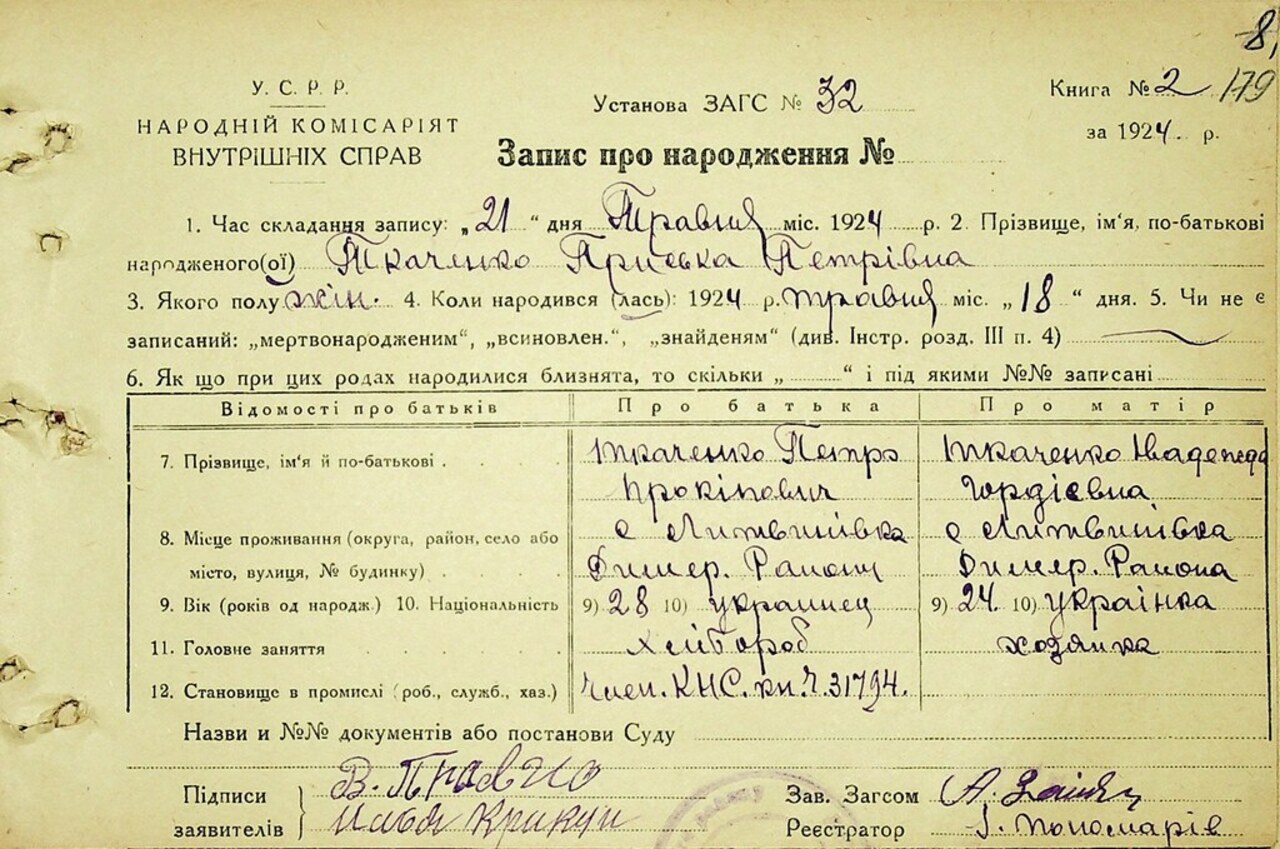 8,
У. С. Р. Р.
НАРОДНІЙ КОМІСАРІЯТ
ВНУТРІШНІХ СПРАВ
Установа ЗАГС № 32
Книга № 2 179
за 1924. р.
Запис про народження №
1. Час складання запису: „21“ дня Травня міс. 1924 р. 2. Прізвище, ім'я, по-батькові
народженого(ої) Ткаченко Приська Петрівна
3. Якого полу жін. 4. Коли народився (лась): 1924 р. травня міс. „18“ дня. 5. Чи не є
записаний: „мертвонародженим“, „всиновлен.“, „знайденям“ (див. Інстр. розд. III п. 4)
6. Як що при цих родах народилися близнята, то скільки „ “ і під якими №№ записані
Відомості про батьків Про батька Про матір
7. Прізвище, ім'я й по-батькові Ткаченко Петро Ткаченко Надежда
Прокіпович Гордієвна
8. Місце проживання (округа, район, село або с Литвинівка с Литвинівка
місто, вулиця, № будинку) Димер. Району Димер. Района
9. Вік (років од народж.) 10. Національність 9) 28 10) украинец 9) 24. 10) українка
11. Головне заняття Хлібороб хозяйка
12. Становище в промислі (роб., служб., хаз.) Член. КНС. кн. Ч. 31794.
Назви и №№ документів або постанови Суду
Підписи В.
заявителів Кракун
Зав. Загсом А.
Реєстратор Пономарів